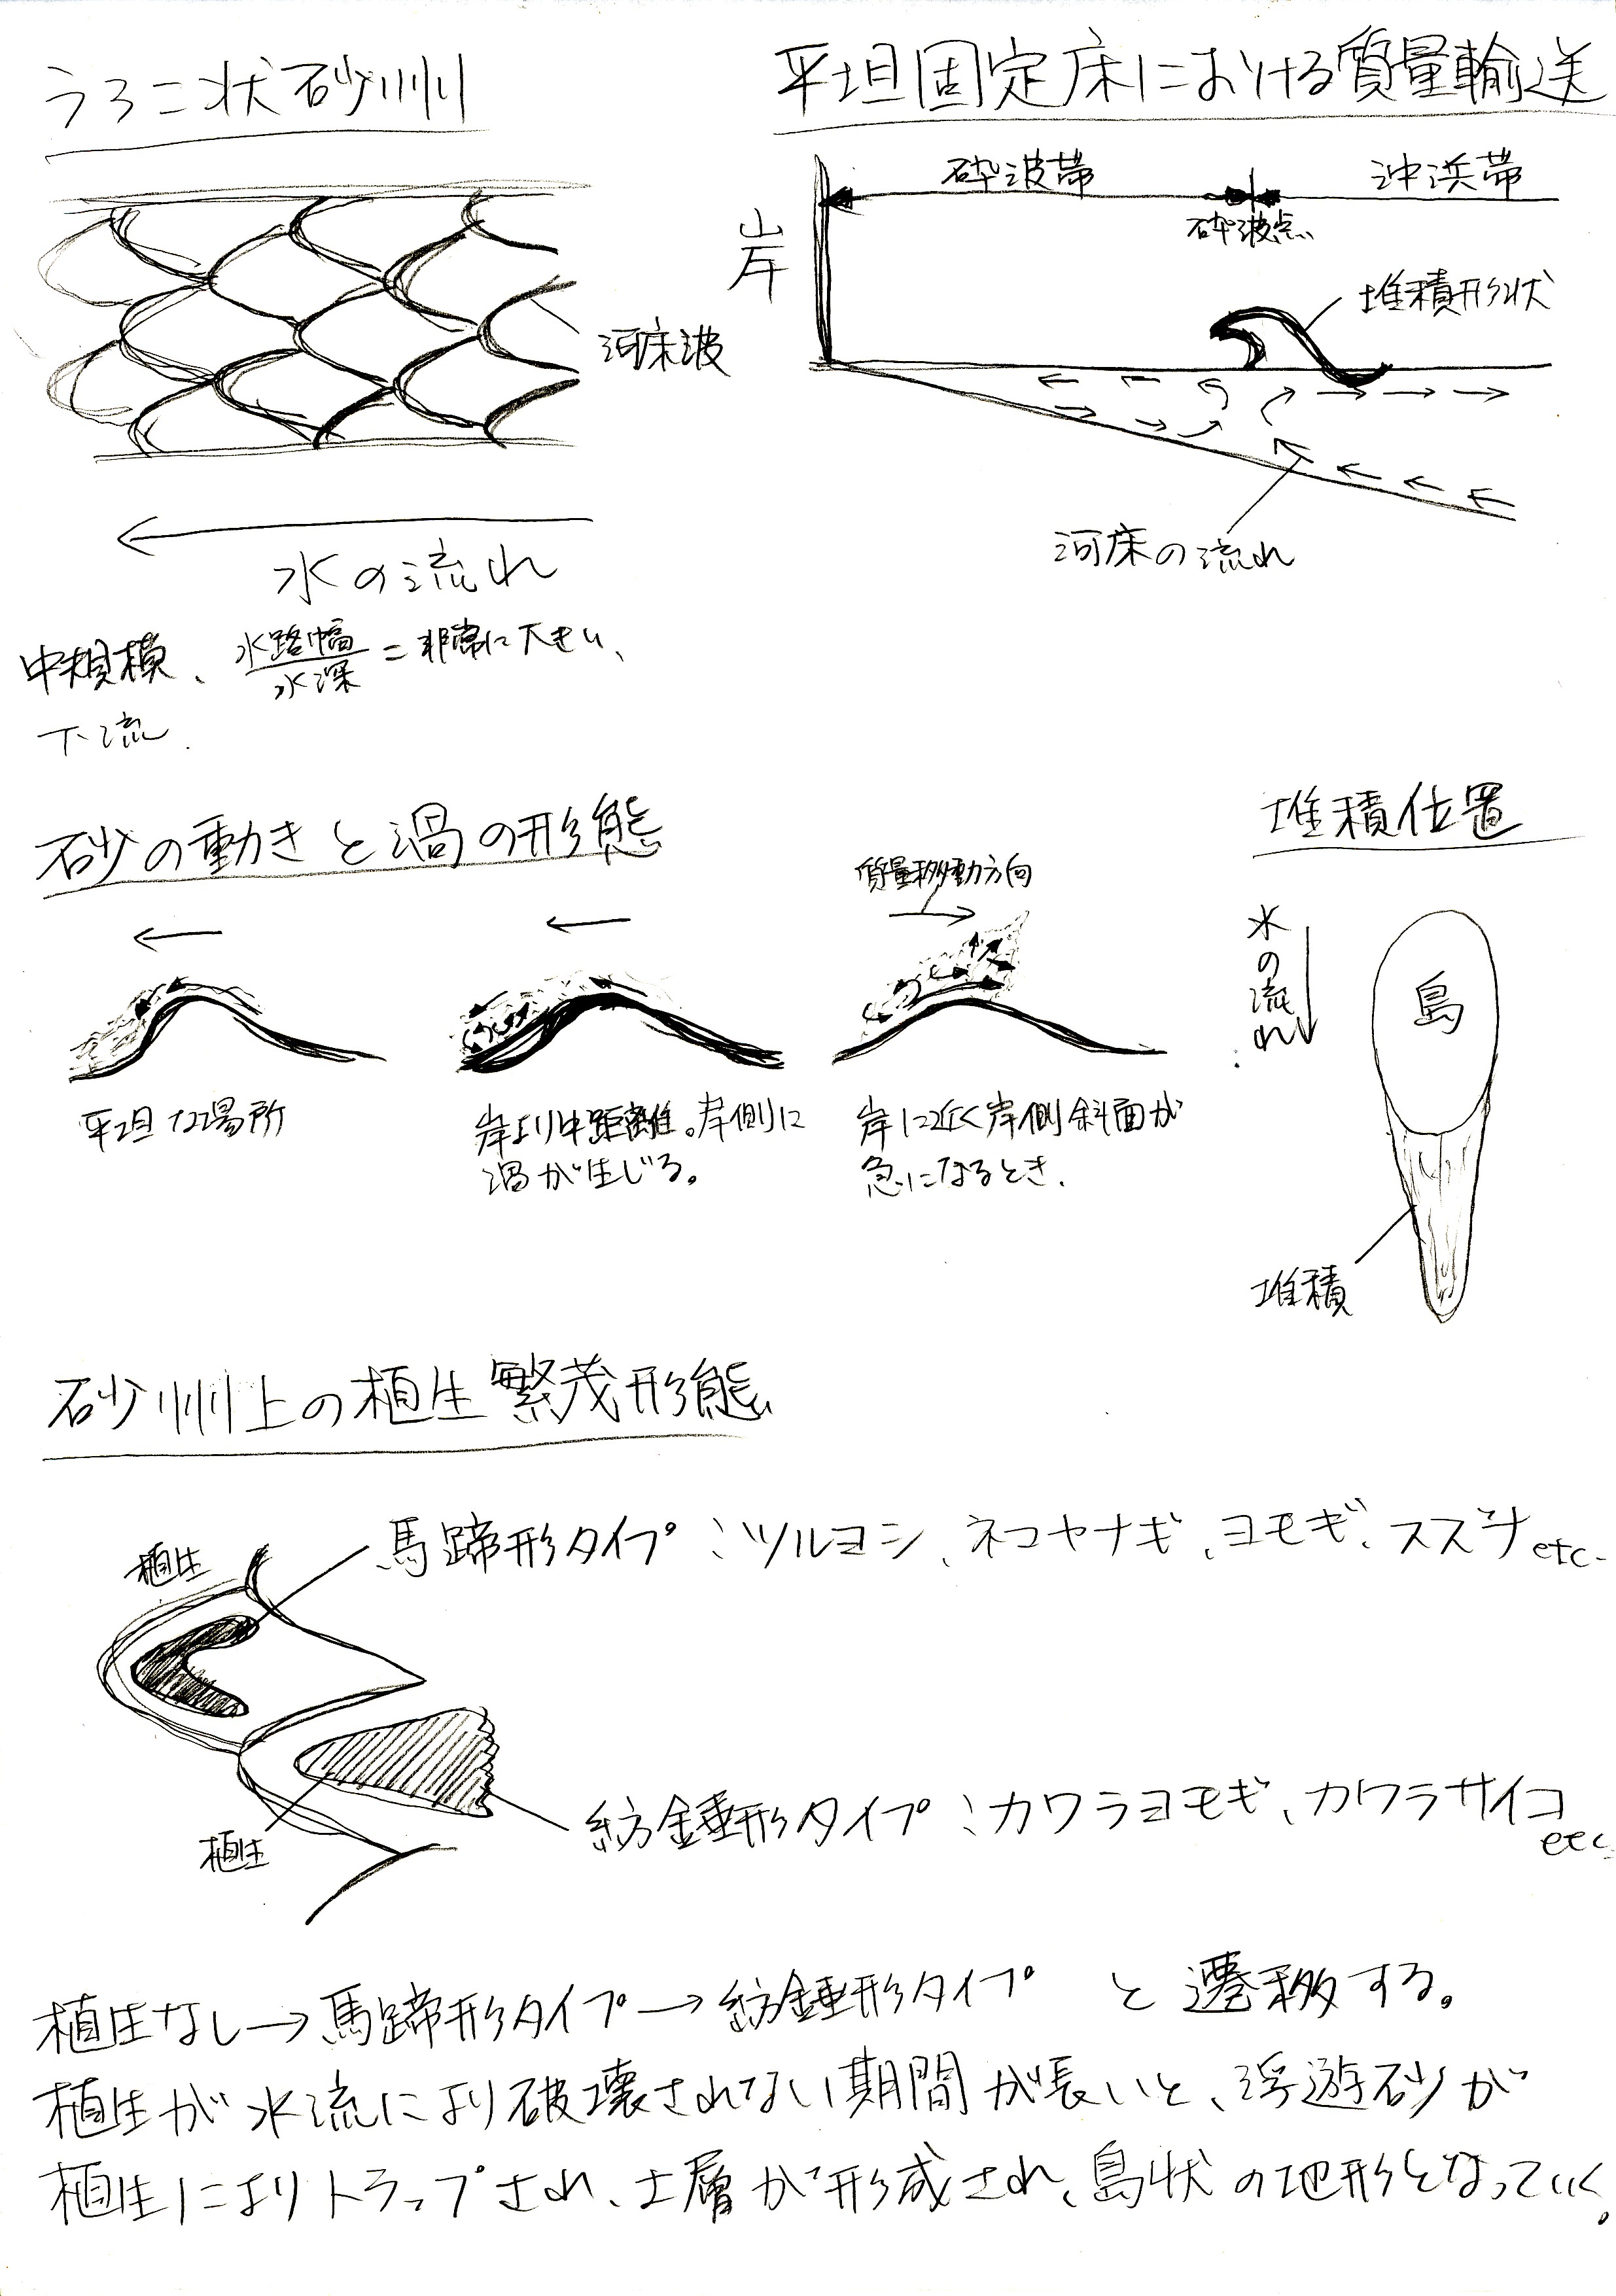 うろこ状砂州
河床波
水の流れ
中規模、水路幅/水深=非常に大きい、
下流.
平坦固定床における質量輸送
砕波帯
沖浜帯
砕波点
岸
堆積形状
河床の流れ
砂の動きと渦の形態
質量移動方向
平坦な場所
岸より中距離。岸側に
渦が生じる。
岸に近く岸側斜面が
急になるとき.
堆積位置
水の流れ
島
堆積
砂州上の植生繁茂形態
植生
馬蹄形タイプ:ツルヨシ、ネコヤナギ、ヨモギ、スズナ etc-
植生
紡錘形タイプ:カワラヨモギ、カワラサイコ
etc
植生なし→馬蹄形タイプ→紡錘形タイプ と遷移する。
植生が水流により破壊されない期間が長いと、浮遊砂が
植生によりトラップされ、土層が形成され、島状の地形となっていく。